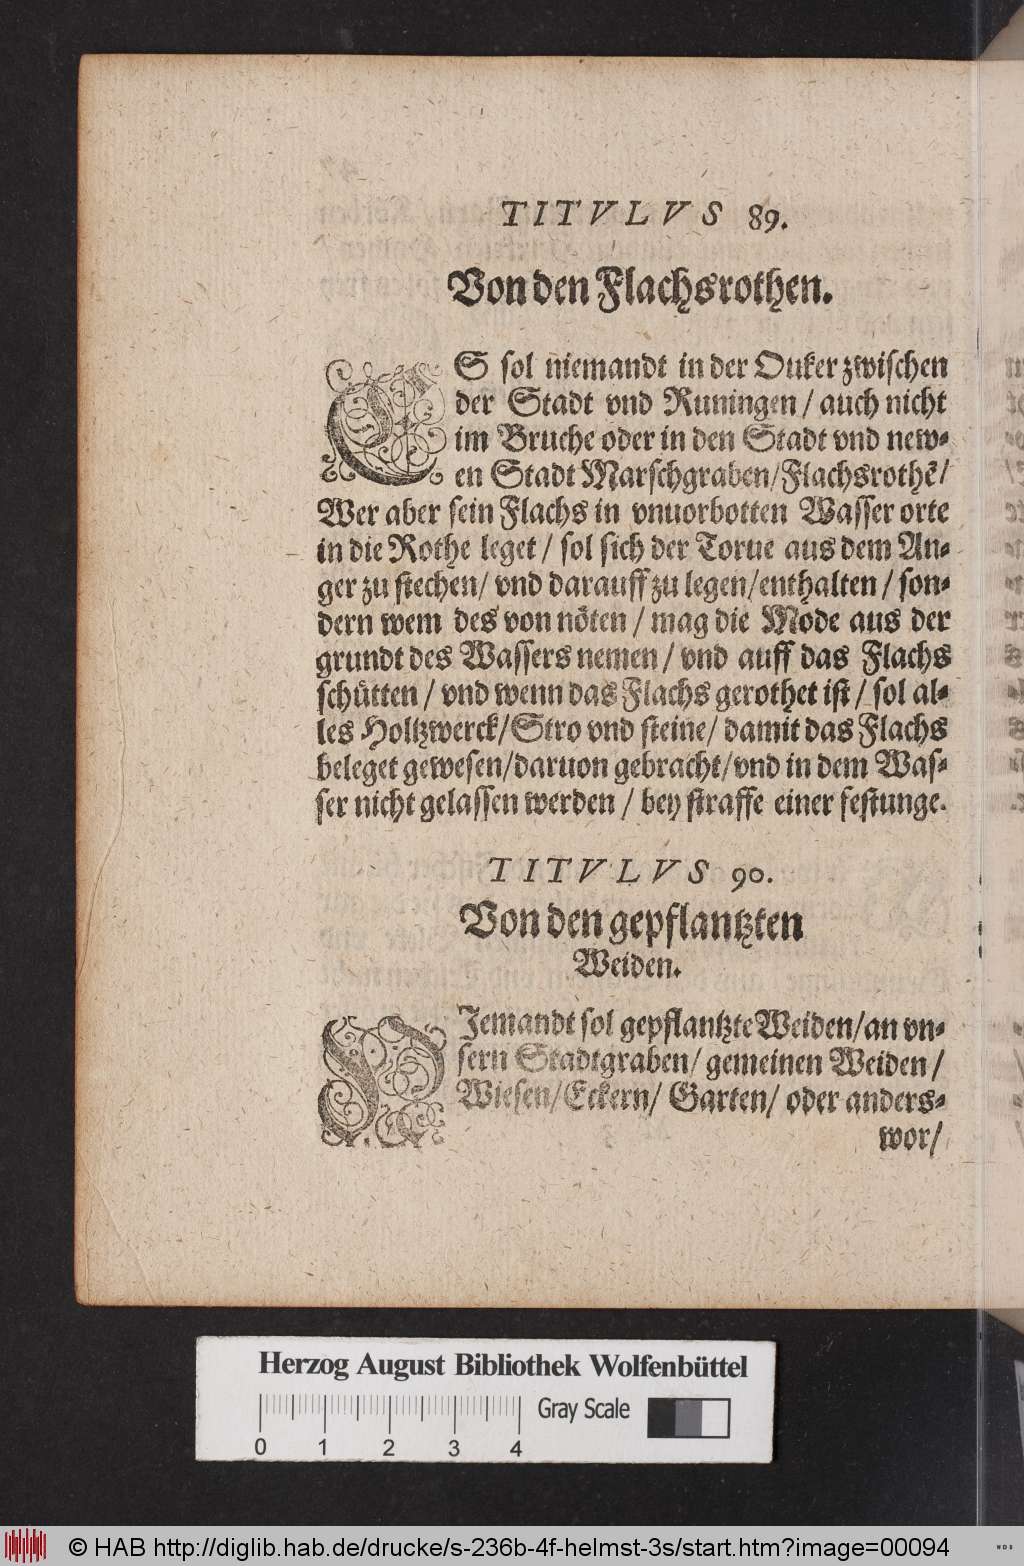 TITVLVS 89.
Von den Flachsrothen.
ES sol niemandt in der Ouker zwischen
der Stadt vnd Runingen / auch nicht
im Bruche oder in den Stadt vnd new-
en Stadt Marschgraben/Flachsrothẽ/
Wer aber sein Flachs in vnuorbotten Wasser orte
in die Rothe leget / sol sich der Torue aus dem An-
ger zu stechen/ vnd darauff zu legen/enthalten / son-
dern wem des von nöten / mag die Mode aus der
grundt des Wassers nemen / vnd auff das Flachs
schütten / vnd wenn das Flachs gerothet ist / sol al-
les Holtzwerck/Stro vnd steine/ damit das Flachs
beleget gewesen/daruon gebracht/vnd in dem Was-
ser nicht gelassen werden / bey straffe einer festunge.
TITVLVS 90.
Von den gepflantzten
Weiden.
NIemandt sol gepflantzte Weiden/an vn-
sern Stadtgraben/ gemeinen Weiden /
Wiesen/Eckern/ Garten/ oder anders-
wor/
Herzog August Bibliothek Wolfenbüttel
Gray Scale
0 1 2 3 4
© HAB http://diglib.hab.de/drucke/s-236b-4f-helmst-3s/start.htm?image=00094